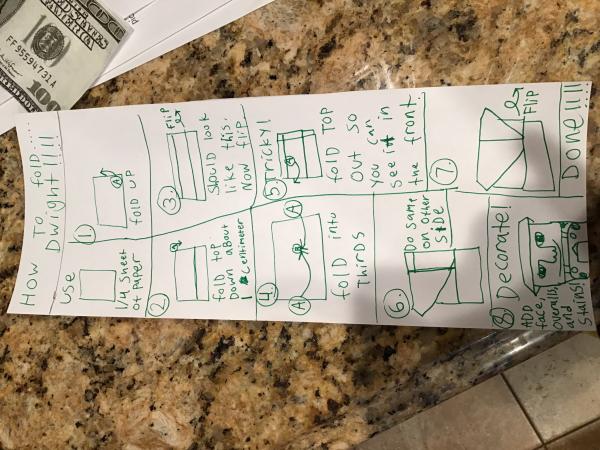 HOW TO fOLD....
DwigHT!!!!
USE
1/4 SHeet
of PAPeR
①
A
fOLD UP
②
fOLD TOP
DOWN ABOUT
1 Centimeter
③
FLIP
SHOULD LOOK
LIKE THIS.
NOW fLIP.
④.
A
A
fOLD INTO
THIRDS
⑤TRICKY!
fOLD TOP
OUT SO
YOU CAN
See it in
the front.
⑥.
DO SAME
ON OTHER
SIDe
⑦.
FLIP
⑧ Decorate!
ADD
face,
overalls,
and
stains!
DONe!!!!
100
FF95594731A
100